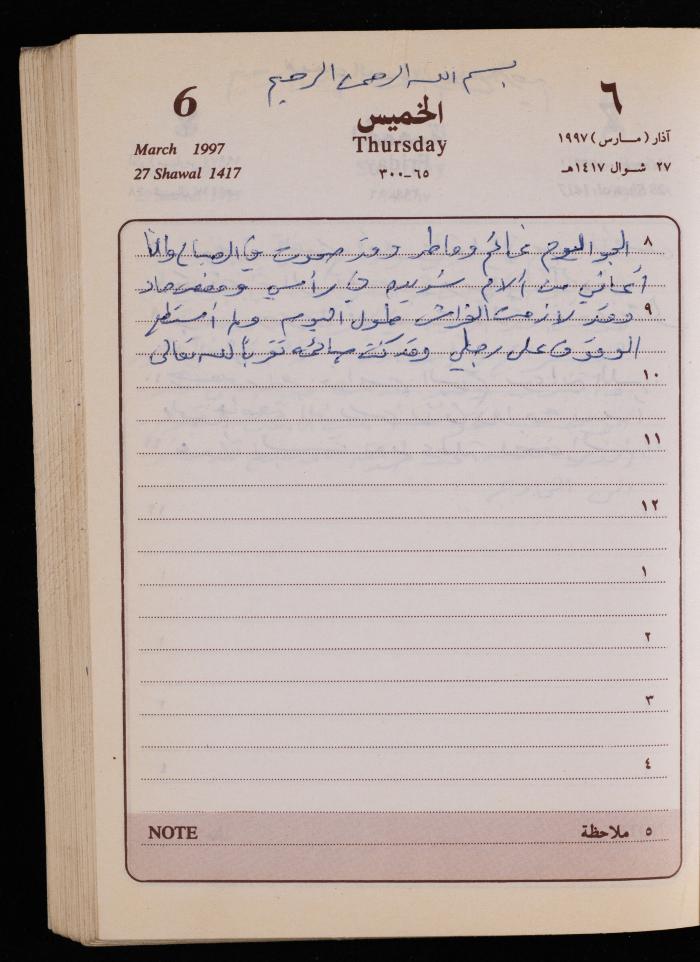 بسم الله الرحمن الرحيم
6
٦
الخميس
Thursday
March 1997
آذار (مارس) ١٩٩٧
27 Shawal 1417
٦٥-٣٠٠
٢٧ شوال ١٤١٧هـ
٨
الجو اليوم غائم وماطر وقد صحوت في الصباح وانا
أعاني من آلام شديدة في رأسي ومغص حاد
٩
وقد لازمت الفراش طول اليوم ولم أستطع
الوقوف على رجلي وقد كنت صائمة تقرباً لله تعالى
١٠
١١
١٢
١
٢
٣
٤
NOTE
٥ ملاحظة